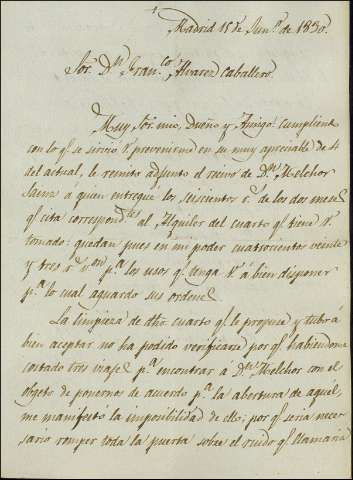 Madrid 15 de Jun.º de 1830.
Sor. D.n Fran.co Alvarez Caballero.
Muy Sor. mio, Dueño y Amigo: Cumpliendo
con lo q.e se sirvió V. prevenirme en su muy apreciable de 4
del actual, le remito adjunto el recivo de D.n Melchor
Sainz á quien entregué los seiscientos r.s de los dos meses
q.e cita correspond.tes al Alquiler del cuarto q.e tiene V.
tomado: quedan pues en mi poder cuatrocientos veinte
y tres r.s v.on p.a los usos q.e tenga V. á bien disponer
p.a lo cual aguardo sus ordenes.
La limpieza de dho cuarto q.e le propuse y tubo á
bien aceptar no ha podido verificarse por q.e habiendome
costado tres viajes p.a encontrar á D.n Melchor con el
objeto de ponernos de acuerdo p.a la abertura de aquel,
me manifestó la imposibilidad de ello; por q.e seria nece-
sario romper toda la puerta sobre el ruido q.e llamaria